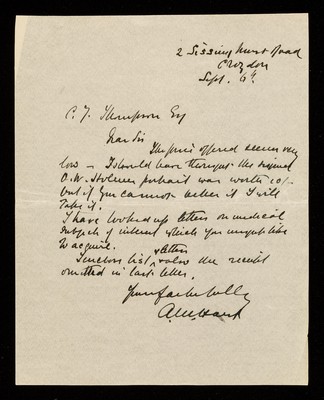 2 Sissinghurst Road
Croydon
Sept. 6th.
C. J. Thompson Esq
Dear Sir
The price offered seems very
low – I should have thought the signed
O. W. Holmes portrait was worth 10/–
but if you cannot better it I will
take it.
I have looked up letters on medical
subjects of interest which you might like
to acquire.
I enclose list & letters also the receipt
omitted in last letter.
Yours faithfully